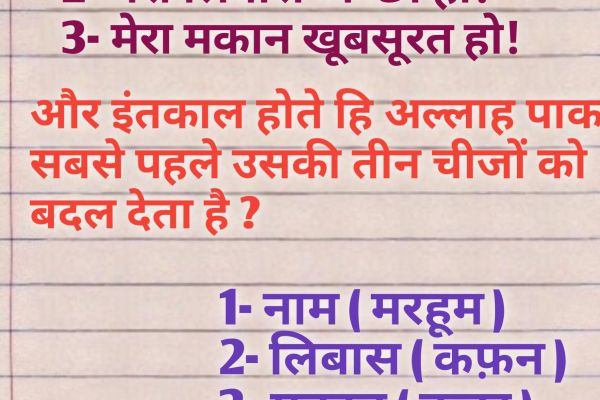 3- मेरा मकान खूबसूरत हो!
और इंतकाल होते हि अल्लाह पाक
सबसे पहले उसकी तीन चीजों को
बदल देता है ?
1- नाम ( मरहूम )
2- लिबास ( कफ़न )